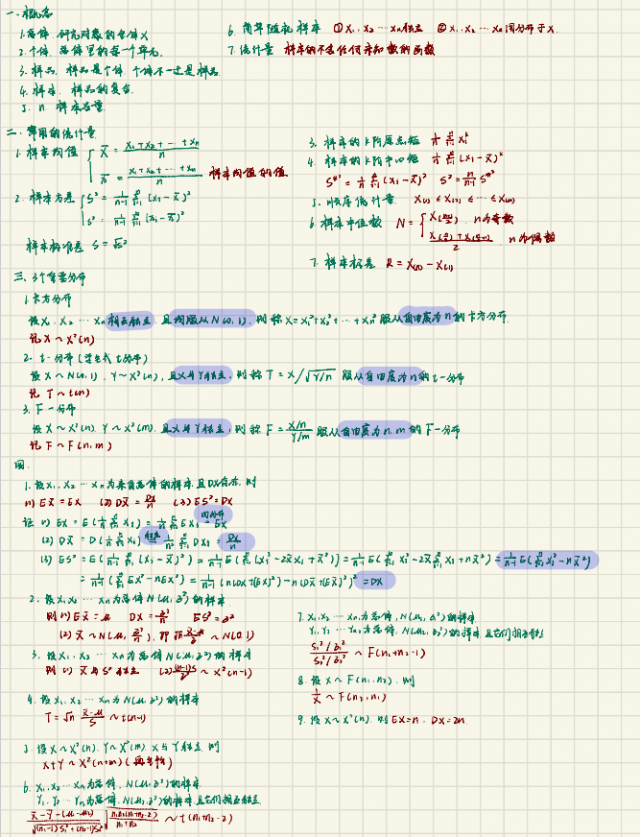 一.概念
1.总体 研究对象的全体X
2.个体 总体里的每一个单元.
3.样品 样品是个体 个体不一定是样品
4.样本 样品的集合.
5. n 样本容量
6.简单随机样本 ①X₁,X₂ ⋯ Xn独立 ②X₁,X₂ ⋯ Xn同分布于X.
7.统计量 样本的不含任何未知数的函数
二.常用的统计量
1.样本均值 { X̄ = (X₁+X₂+⋯+Xn)/n
x̄ = (x₁+x₂+⋯+xn)/n 样本均值的值.
2.样本方差 { S² = 1/(n-1) Σ(i=1→n) (Xi-X̄)²
s² = 1/(n-1) Σ(i=1→n) (xi-x̄)²
样本标准差 S = √S²
3.样本的k阶原点矩 1/n Σ(i=1→n) Xi^k
4.样本的k阶中心矩 1/n Σ(i=1→n) (Xi-X̄)^k
S*² = 1/n Σ(i=1→n) (Xi-X̄)² S² = n/(n-1) S*²
5.顺序统计量 X(1) ≤ X(2) ≤ ⋯ ≤ X(n)
6.样本中位数 N = { X((n+1)/2) n为奇数
(X(n/2)+X(n/2+1))/2 n为偶数
7.样本极差 R = X(n)-X(1)
三. 3个重要分布
1.卡方分布
设X₁,X₂ ⋯ Xn相互独立 且均服从N(0,1),则称X=X₁²+X₂²+⋯+Xn²服从自由度为n的卡方分布
记X~X²(n)
2. t-分布(学生氏t分布)
设X~N(0,1) Y~X²(n),且X与Y独立,则称T=X/√(Y/n) 服从自由度为n的t-分布
记 T~t(n)
3. F-分布
设X~X²(n) Y~X²(m) 且X与Y独立,则称F=(X/n)/(Y/m)服从自由度为n,m的F-分布
记F~F(n,m)
四.
1.设X₁,X₂ ⋯ Xn为来自总体的样本,且DX存在,则
(1) EX̄=EX (2) DX̄=DX/n (3) ES²=DX
证 (1) EX̄ = E(1/n Σ(i=1→n) Xi) = 1/n Σ(i=1→n) EXi 同分布 = EX
(2) DX̄ = D(1/n Σ(i=1→n) Xi) 独立 = 1/n² Σ(i=1→n) DXi = DX/n
(3) ES² = E(1/(n-1) Σ(i=1→n) (Xi-X̄)²) = 1/(n-1) E(Σ(i=1→n) (Xi²-2X̄Xi+X̄²)) = 1/(n-1) E(Σ(i=1→n) Xi²-2X̄Σ(i=1→n) Xi+nX̄²) = 1/(n-1) E(Σ(i=1→n) Xi²-nX̄²)
= 1/(n-1) (Σ(i=1→n) EX²-nEX̄²) = 1/(n-1) (n(DX+(EX)²)-n(DX̄+(EX̄)²) = DX
2.设X₁,X₂ ⋯ Xn为总体N(μ,σ²)的样本
则(1) EX̄=μ DX̄=σ²/n ES²=σ²
(2) X̄~N(μ,σ²/n),即√n (X̄-μ)/σ ~ N(0,1)
3.设X₁,X₂ ⋯ Xn为总体N(μ,σ²)的样本
则(1) X̄与S²独立 (2) (n-1)S²/σ² ~ X²(n-1)
4.设X₁,X₂ ⋯ Xn为N(μ,σ²)的样本
T=√n (X̄-μ)/S ~ t(n-1)
5.设X~X²(n) Y~X²(m) X与Y独立 则
X+Y~X²(n+m)(再生性)
6. X₁,X₂ ⋯ Xn为总体,N(μ,σ²)的样本
Y₁,Y₂ ⋯ Yn为总体,N(μ,σ²)的样本,且它们相互独立
(X̄-Ȳ-(μ₁-μ₂))/√((n₁-1)S₁²+(n₂-1)S₂²) √(n₁n₂(n₁+n₂-2)/(n₁+n₂)) ~ t(n₁+n₂-2)
7. X₁,X₂ ⋯ Xn为总体,N(μ,σ²)的样本
Y₁,Y₂ ⋯ Yn为总体,N(μ,σ²)的样本 且它们相互独立
(S₁²/σ₁²)/(S₂²/σ₂²) ~ F(n₁+n₂-1)
8.设X~F(n₁,n₂) 则
1/X ~ F(n₂,n₁)
9.设X~X²(n) 则EX=n. DX=2n.